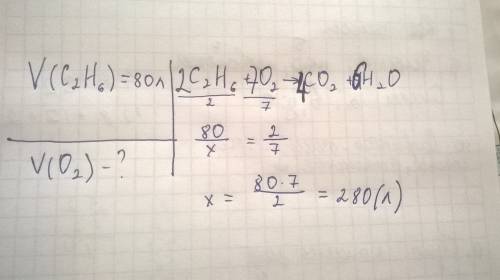 V(C₂H₆) = 80л
2C₂H₆ + 7O₂ → 4CO₂ + 6H₂O
2 7
80/x = 2/7
V(O₂) - ?
x = 80·7/2 = 280(л)